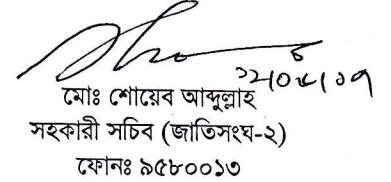 মোঃ শোয়েব আব্দুল্লাহ
সহকারী সচিব (জাতিসংঘ-২)
ফোনঃ ৯৫৮০০১৩